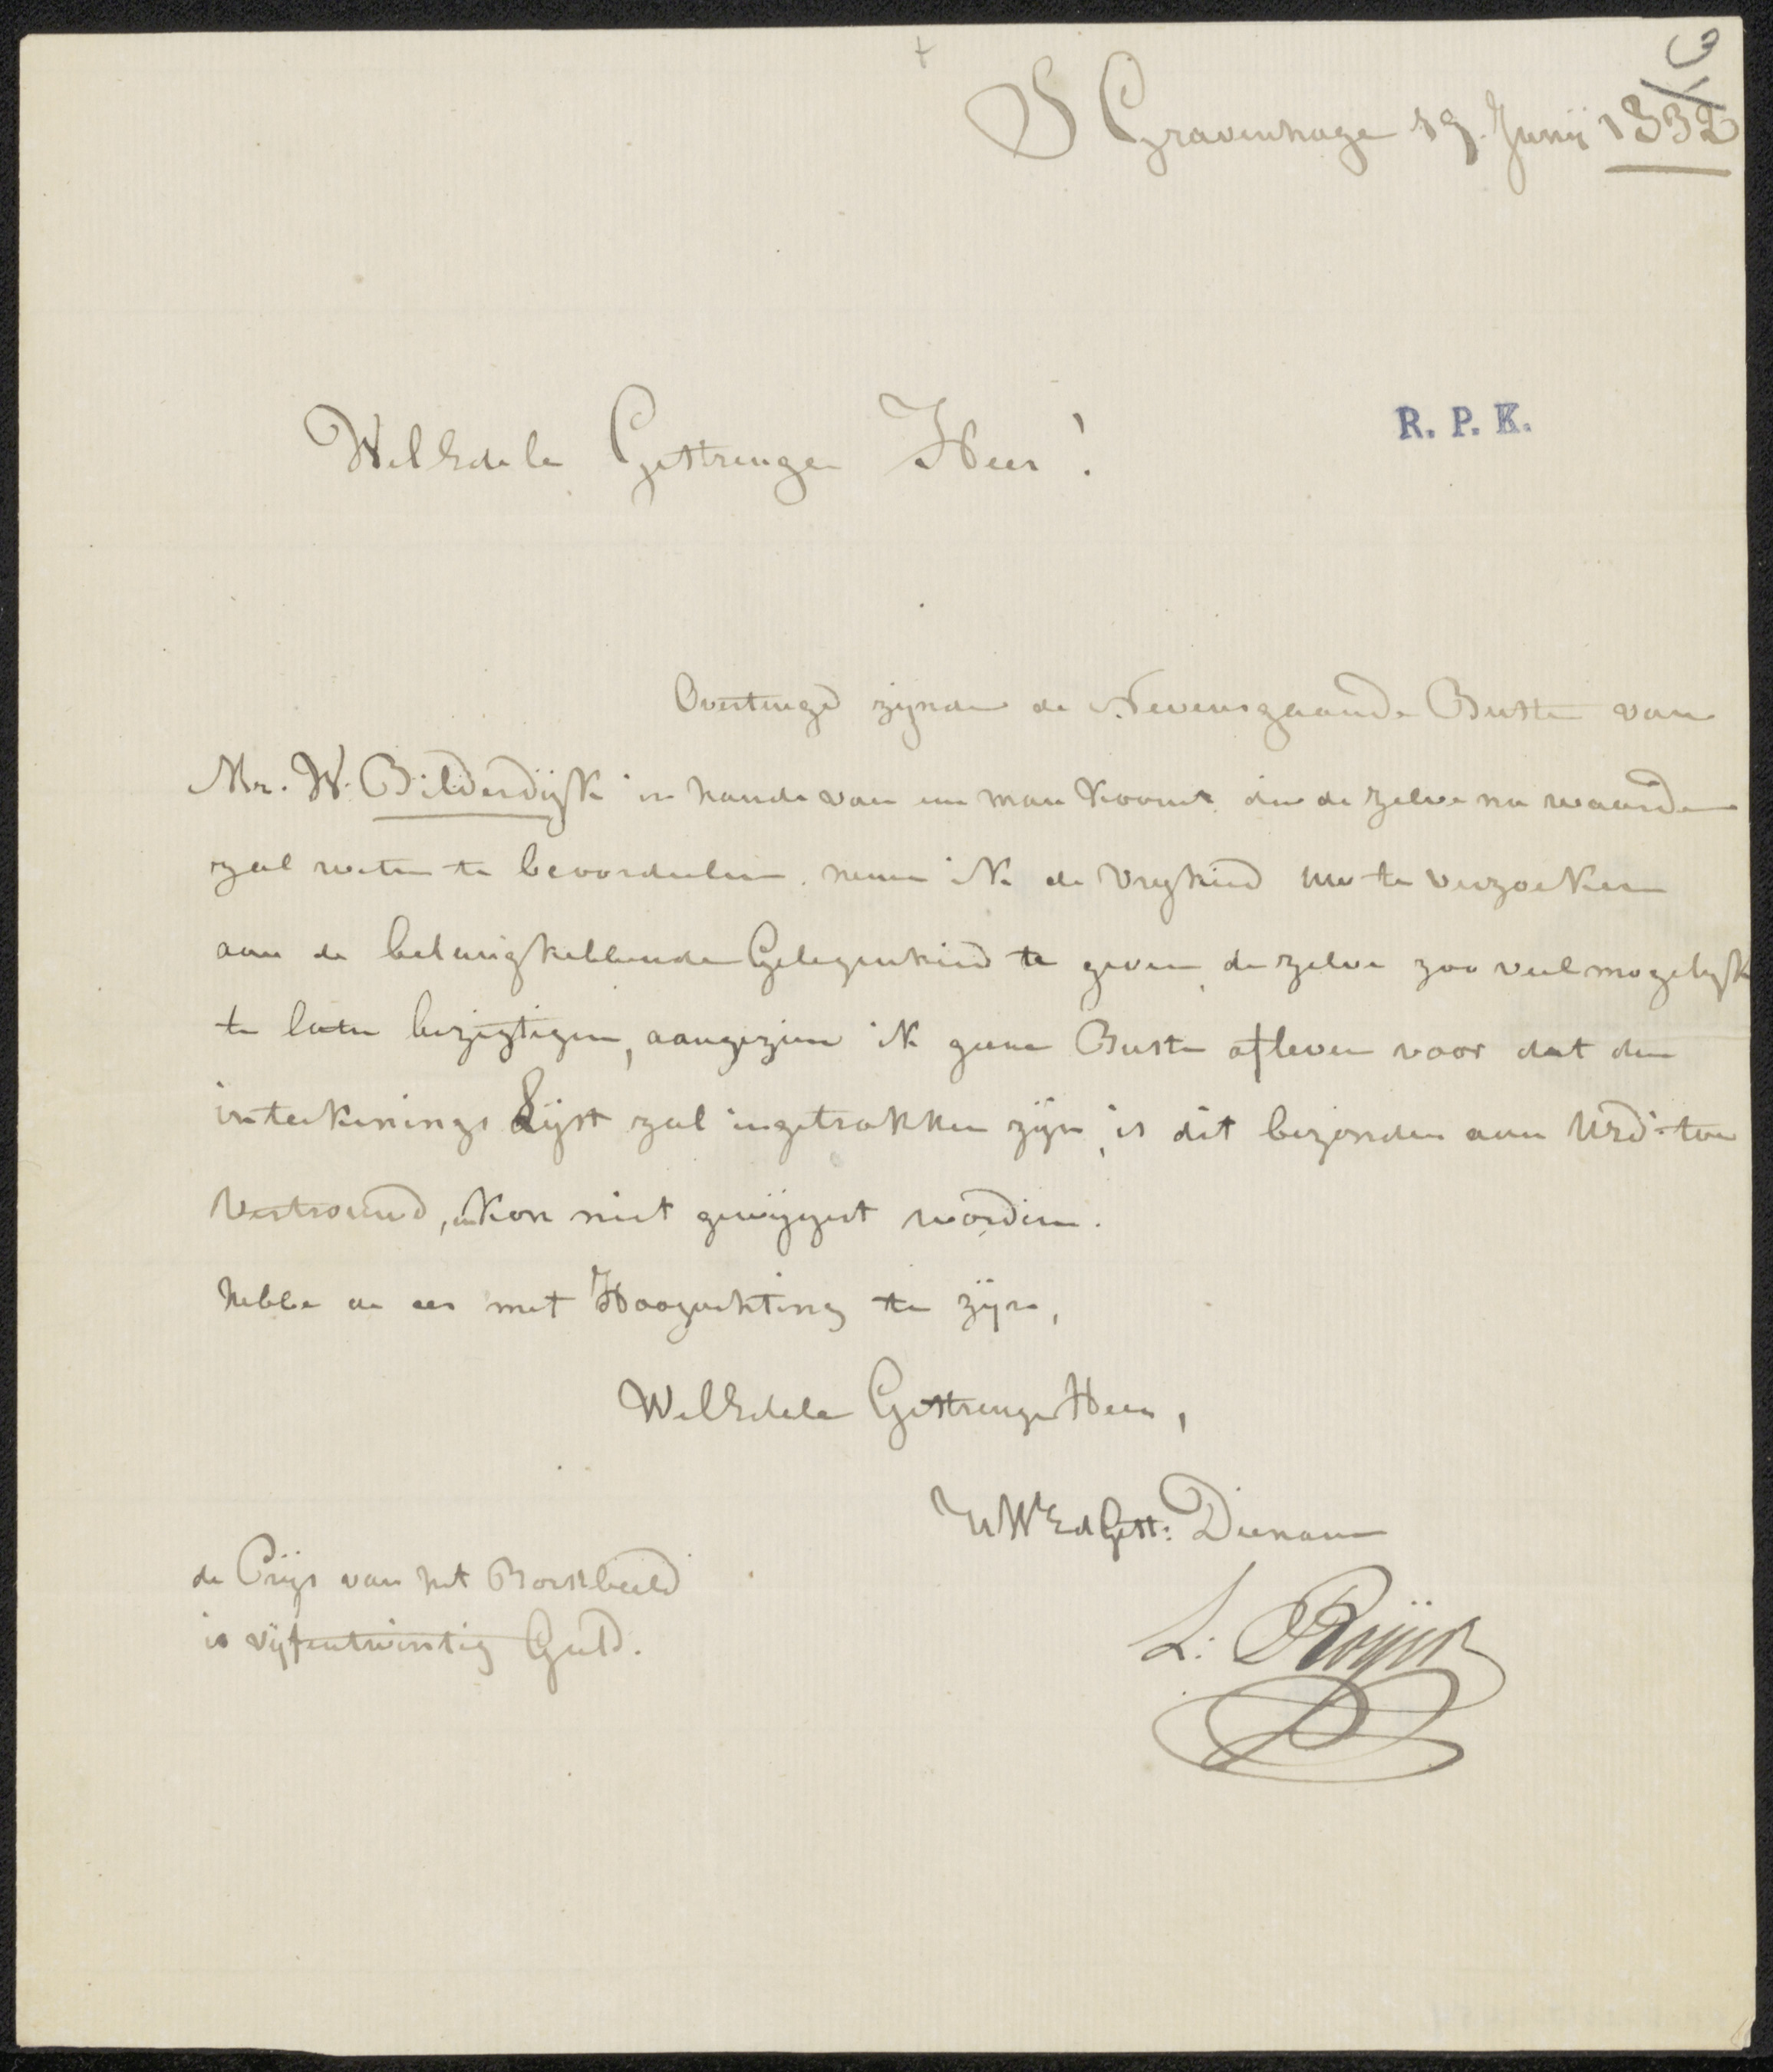 S Gravenhage 19. Junij 1832
WelEdele Gestrenge Heer!
R. P. K.
Overtuigd zijnde de Nevensgaande Buste van
Mr. W. Bilderdijk in hande van een man koomt die de zelve na waarde
zal weten te bevoordeelen. neem ik de Vryheid uw te verzoeken
aan de belanghebbende Gelegenheid te geven, de zelve zoo veel mogelyk
te laten bezigtigen, aangezien ik geene Buste aflever voor dat den
intekenings Lijst zal ingetrokken zijn, is dit bezonder aan UEd: toe
Vertrouwd, en kon niet gewijgert worden.
hebbe de eer met Hoogachting te zijn,
WelEdele Gestrenge Heer,
UWEd Gest: Dienaar
de Prijs van het Borstbeeld
is vijfentwintig Guld.
L: Royer